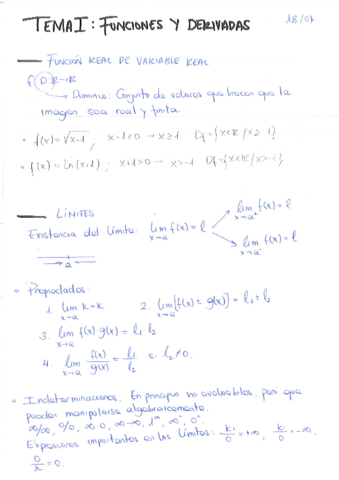 TEMA I: FUNCIONES Y DERIVADAS 18/07
— FUNCIÓN REAL DE VARIABLE REAL
f: D⊂ℝ→ℝ
Dominio: Conjunto de valores que hacen que la
imagen sea real y finita.
• f(x)=√x-1 ; x-1≥0 → x≥1 Df={x∈ℝ / x≥1}
• f(x)= ln(x+1) ; x+1>0 → x>-1 Df={x∈ℝ / x>-1}
— LÍMITES
Existencia del límite: lim x→a f(x)=l
lim x→a⁺ f(x)=l
lim x→a⁻ f(x)=l
a
• Propiedades:
1. lim x→a k=k 2. lim x→a [f(x)±g(x)] = l₁±l₂
3. lim x→a f(x) g(x) = l₁ l₂
4. lim x→a f(x)/g(x) = l₁/l₂ si l₂≠0.
• Indeterminaciones. En principio no evaluables, pero que
pueden manipularse algebraicamente.
∞/∞, 0/0, ∞·0, ∞-∞, 1^∞, ∞⁰, 0⁰
Expresiones importantes en los límites: k/0 = +∞, k/0 = -∞,
= 0.